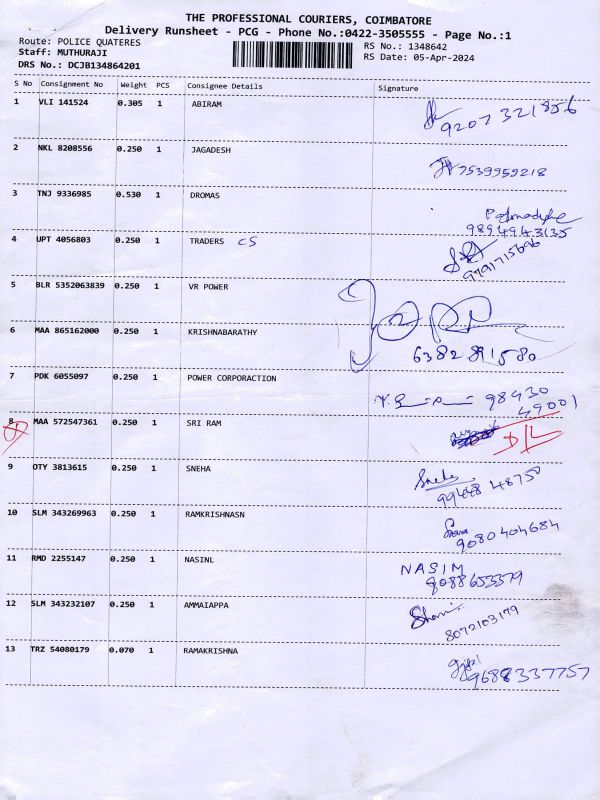 THE PROFESSIONAL COURIERS, COIMBATORE
Delivery Runsheet - PCG - Phone No.:0422-3505555 - Page No.:1
Route: POLICE QUATERES
RS No.: 1348642
Staff: MUTHURAJI
RS Date: 05-Apr-2024
DRS No.: DCJB134864201
S No Consignment No Weight PCS Consignee Details Signature
1 VLI 141524 0.305 1 ABIRAM
9207321856
2 NKL 8208556 0.250 1 JAGADESH
7539959218
3 TNJ 9336985 0.530 1 DROMAS
9894943135
4 UPT 4056803 0.250 1 TRADERS CS
9791715696
5 BLR 5352063839 0.250 1 VR POWER
6 MAA 865162000 0.250 1 KRISHNABARATHY
6382891580
7 PDK 6055097 0.250 1 POWER CORPORACTION
98430
49001
8 MAA 572547361 0.250 1 SRI RAM
D/L
9 OTY 3813615 0.250 1 SNEHA
Sneha
99448 48750
10 SLM 343269963 0.250 1 RAMKRISHNASN
9080404684
11 RMD 2255147 0.250 1 NASINL
NASIM
9088653379
12 SLM 343232107 0.250 1 AMMAIAPPA
8072103179
13 TRZ 54080179 0.070 1 RAMAKRISHNA
9688337757